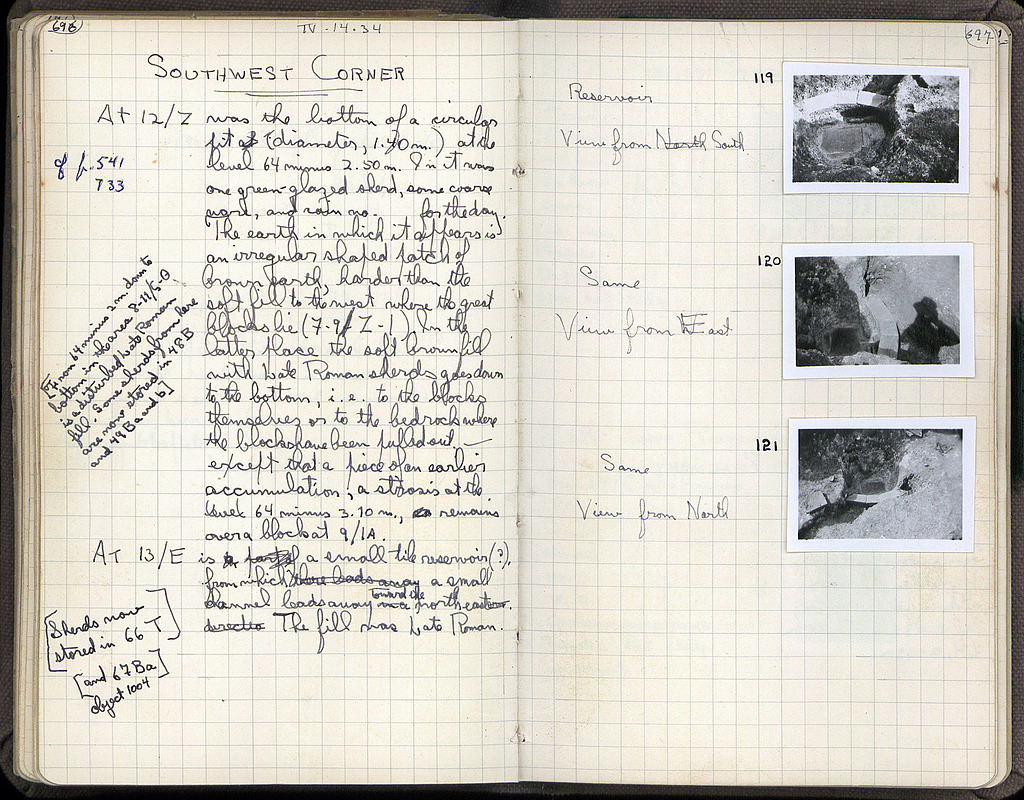 696
IV.14.34
SOUTHWEST CORNER
At 12/Z was the bottom of a circular
pit (diameter, 1.40 m.) at the
cf p. 541
level 64 minus 2.50 m. In it was
733
one green-glazed sherd, some coarse
ware, and for the day.
The earth in which it appears is
an irregular shaped patch of
brown earth, harder than the
soft fill to the west where the great
blocks lie (7-9/Z-1) In the
latter place the soft brown fill
with Late Roman sherds goes down
to the bottom, i.e. to the blocks
themselves or to the bedrock where
the blocks have been pulled out —
except that a piece of an earlier
accumulation, a at the
level 64 minus 3.70 m., remains
over a block at 9/1A.
[From 64 minus 2 m down to
bottom in the area 8-11/5-Θ
is a disturbed Late Roman
fill. Some sherds from here
are now stored in 48 B
and 49 Ba and b]
AT 13/E is a part of a small tile reservoir (?),
from which there leads away a small
channel leads away in a toward the northeastern.
directio The fill was Late Roman.
[Sherds now
stored in 66 T]
[and 67 Ba]
object 1004
697
119
Reservoir
View from North South.
120
Same
View from East
121
Same
View from North